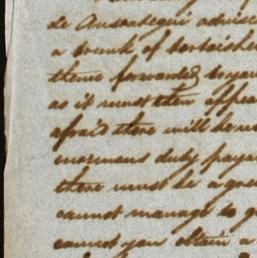 de Andrabeque advise
a trunk of tortoishe
them forwarded
as it must then appea
afraid there will be no
enormous duty paya
there must be a grea
cannot manage to g
cannot you obtain a